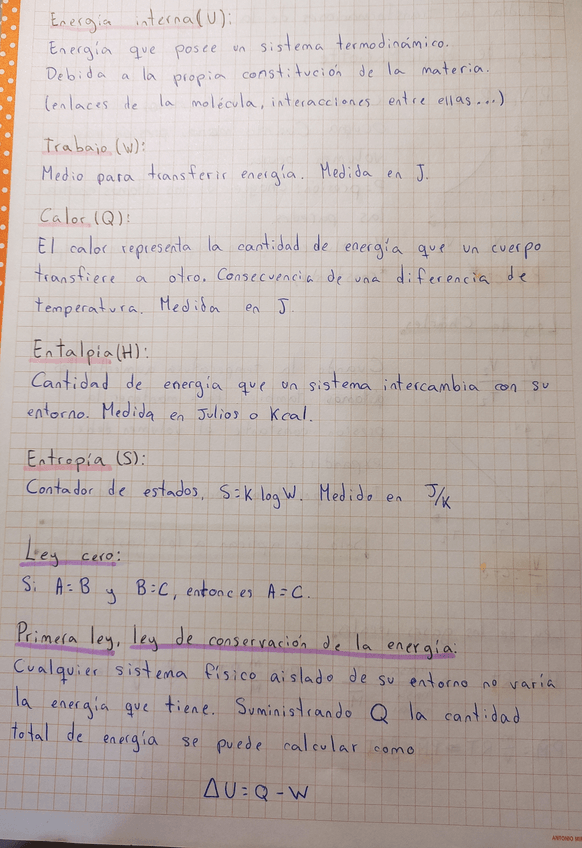 Energía interna(U):
Energía que posee un sistema termodinámico.
Debida a la propia constitución de la materia.
(enlaces de la molécula, interacciones entre ellas...)
Trabajo (W):
Medio para transferir energía. Medida en J.
Calor (Q):
El calor representa la cantidad de energía que un cuerpo
transfiere a otro. Consecuencia de una diferencia de
temperatura. Medida en J.
Entalpía (H):
Cantidad de energía que un sistema intercambia con su
entorno. Medida en Julios o Kcal.
Entropía (S):
Contador de estados. S=K log W. Medido en J/K
Ley cero:
Si A=B y B=C, entonces A=C.
Primera ley, ley de conservación de la energía:
Cualquier sistema físico aislado de su entorno no varía
la energía que tiene. Suministrando Q la cantidad
total de energía se puede calcular como
ΔU=Q-W